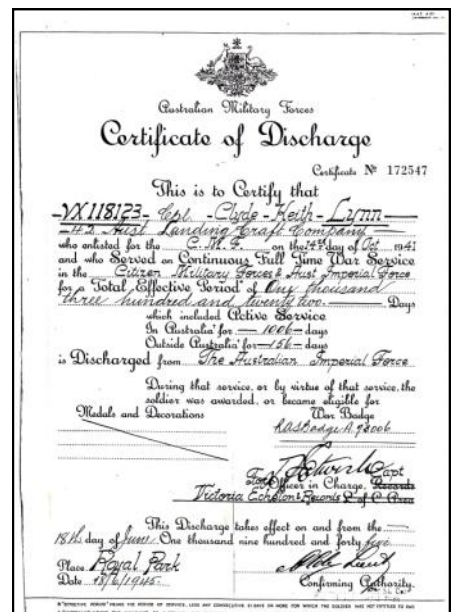 Australian Military Forces
Certificate of Discharge
Certificate Nº 172547
This is to Certify that
VX118123 - Cpl - Clyde - Keith - Lynn
42 Aust Landing Craft Company
who enlisted for the C.M.F. on the day of Oct 1941
and who Served on Continuous Full Time War Service
in the Citizen Military Forces & Aust Imperial Force
for a Total Effective Period of One thousand
three hundred and twenty two Days
which included Active Service
In Australia for — 1006 — days
Outside Australia for — 156 — days
is Discharged from The Australian Imperial Force
During that service, or by virtue of that service, the
soldier was awarded, or became eligible for
Medals and Decorations War Badge
Capt
For Officer in Charge, Records
Victoria Echelon & Records L of C Area
This Discharge takes effect on and from the
18th day of June One thousand nine hundred and forty five
Place Royal Park Lieut
Date 18/6/1945. Confirming Authority.